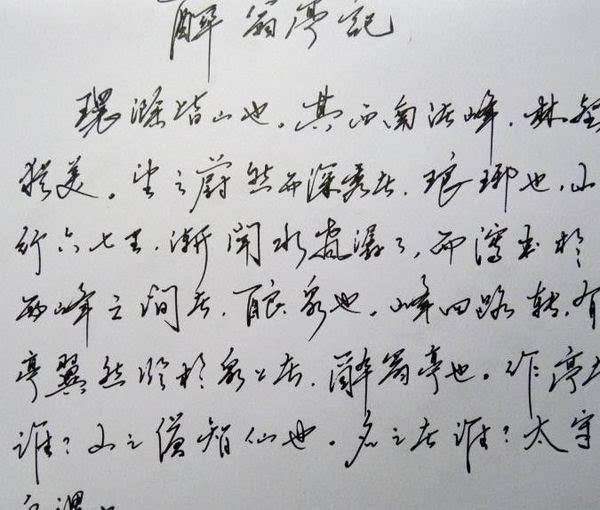 醉翁亭记
環滁皆山也。其西南诸峰,林壑
犹美。望之蔚然而深秀者,琅琊也,山
行六七里,渐闻水声潺々,而泻出於
两峰之间者,酿泉也。峰回路转,有
亭翼然临於泉上者,醉翁亭也。作亭者
谁?山之僧智仙也。名之者谁?太守
自谓也